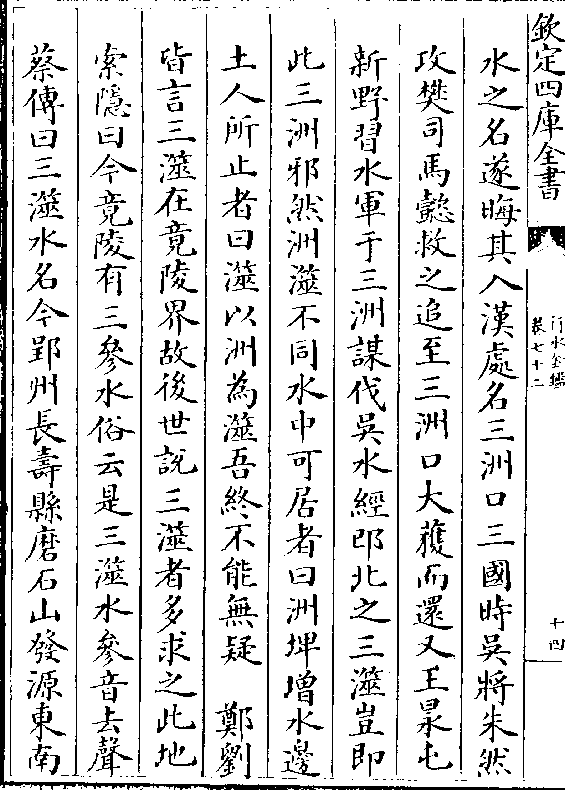 欽定四庫全書
行水金鑑
卷七十二
十四
水之名遂晦其入漢處名三洲口三國時吳將朱然
攻樊司馬懿救之追至三洲口大獲而還又王昶屯
新野習水軍于三洲謀伐吳水經邔北之三澨豈即
此三洲邪然洲澨不同水中可居者曰洲埤增水邊
土人所止者曰澨以洲為澨吾終不能無疑　鄭劉
皆言三澨在竟陵界故後世說三澨者多求之此地
索隱曰今竟陵有三參水俗云是三澨水參音去聲
蔡傳曰三澨水名今郢州長壽縣磨石山發源東南